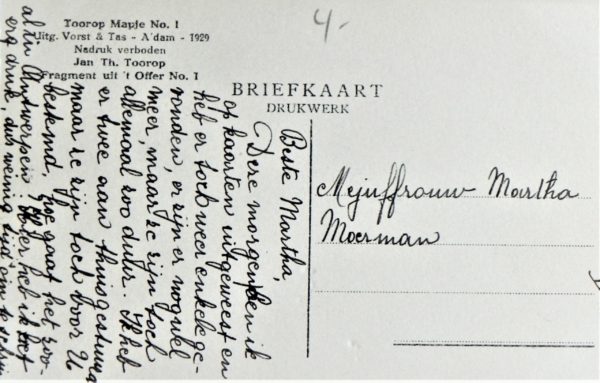 4-
Toorop Mapje No. 1
Uitg. Vorst & Tas - A'dam - 1929
Nadruk verboden
Jan Th. Toorop
Fragment uit 't Offer No. 1
BRIEFKAART
DRUKWERK
Beste Martha,
Deze morgen ben ik
op kaarten uitgeweest en
heb er toch weer enkele ge-
vonden, er zijn er nog veel
meer, maar ze zijn toch
allemaal zoo duur. Ik heb
er twee aan thuisgestuurd
maar ze zijn toch voor U
bestemd. Hoe gaat het zoo-
al in Antwerpen? Hier heb ik het
erg druk, dus weinig tijd om te schrij
Mejuffrouw Martha
Moerman